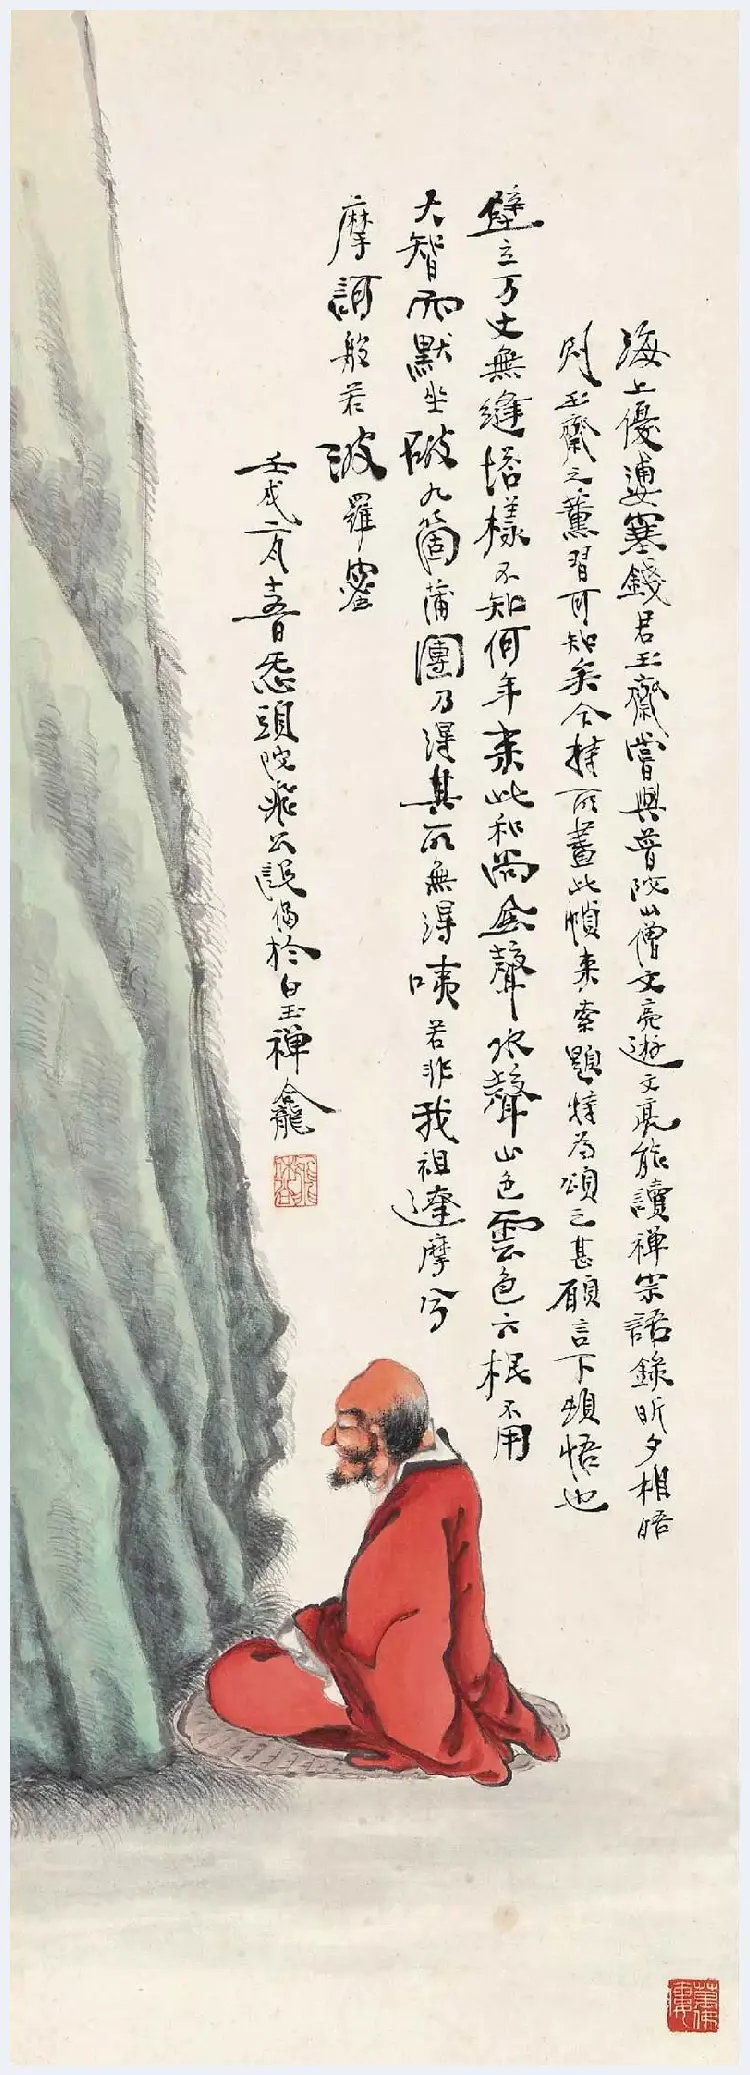 海上優婆塞錢君玉齋嘗與普陀山僧文亮遊文亮能讀禪宗語錄昕夕相晤
則玉齋之薰習可知矣今持所畫此幀来索題特為頌之甚願言下頓悟也
壁立万丈無縫塔樣不知何年来此和尚無聲水聲山色雲色六根不用
大智而默坐破九箇蒲團乃得其所無得咦若非我祖達摩兮
摩訶般若波羅蜜
壬戌二月十五日 頭陀 於白玉禪龕